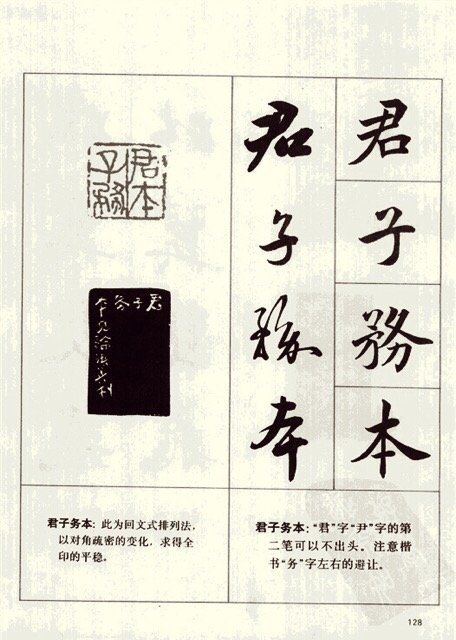 君
子
務
本
君
子
務
本
君本
子務
君子务
本
君子务本：此为回文式排列法，
以对角疏密的变化，求得全
印的平稳。
君子务本：“君”字“尹”字的第
二笔可以不出头。注意楷
书“务”字左右的避让。
128